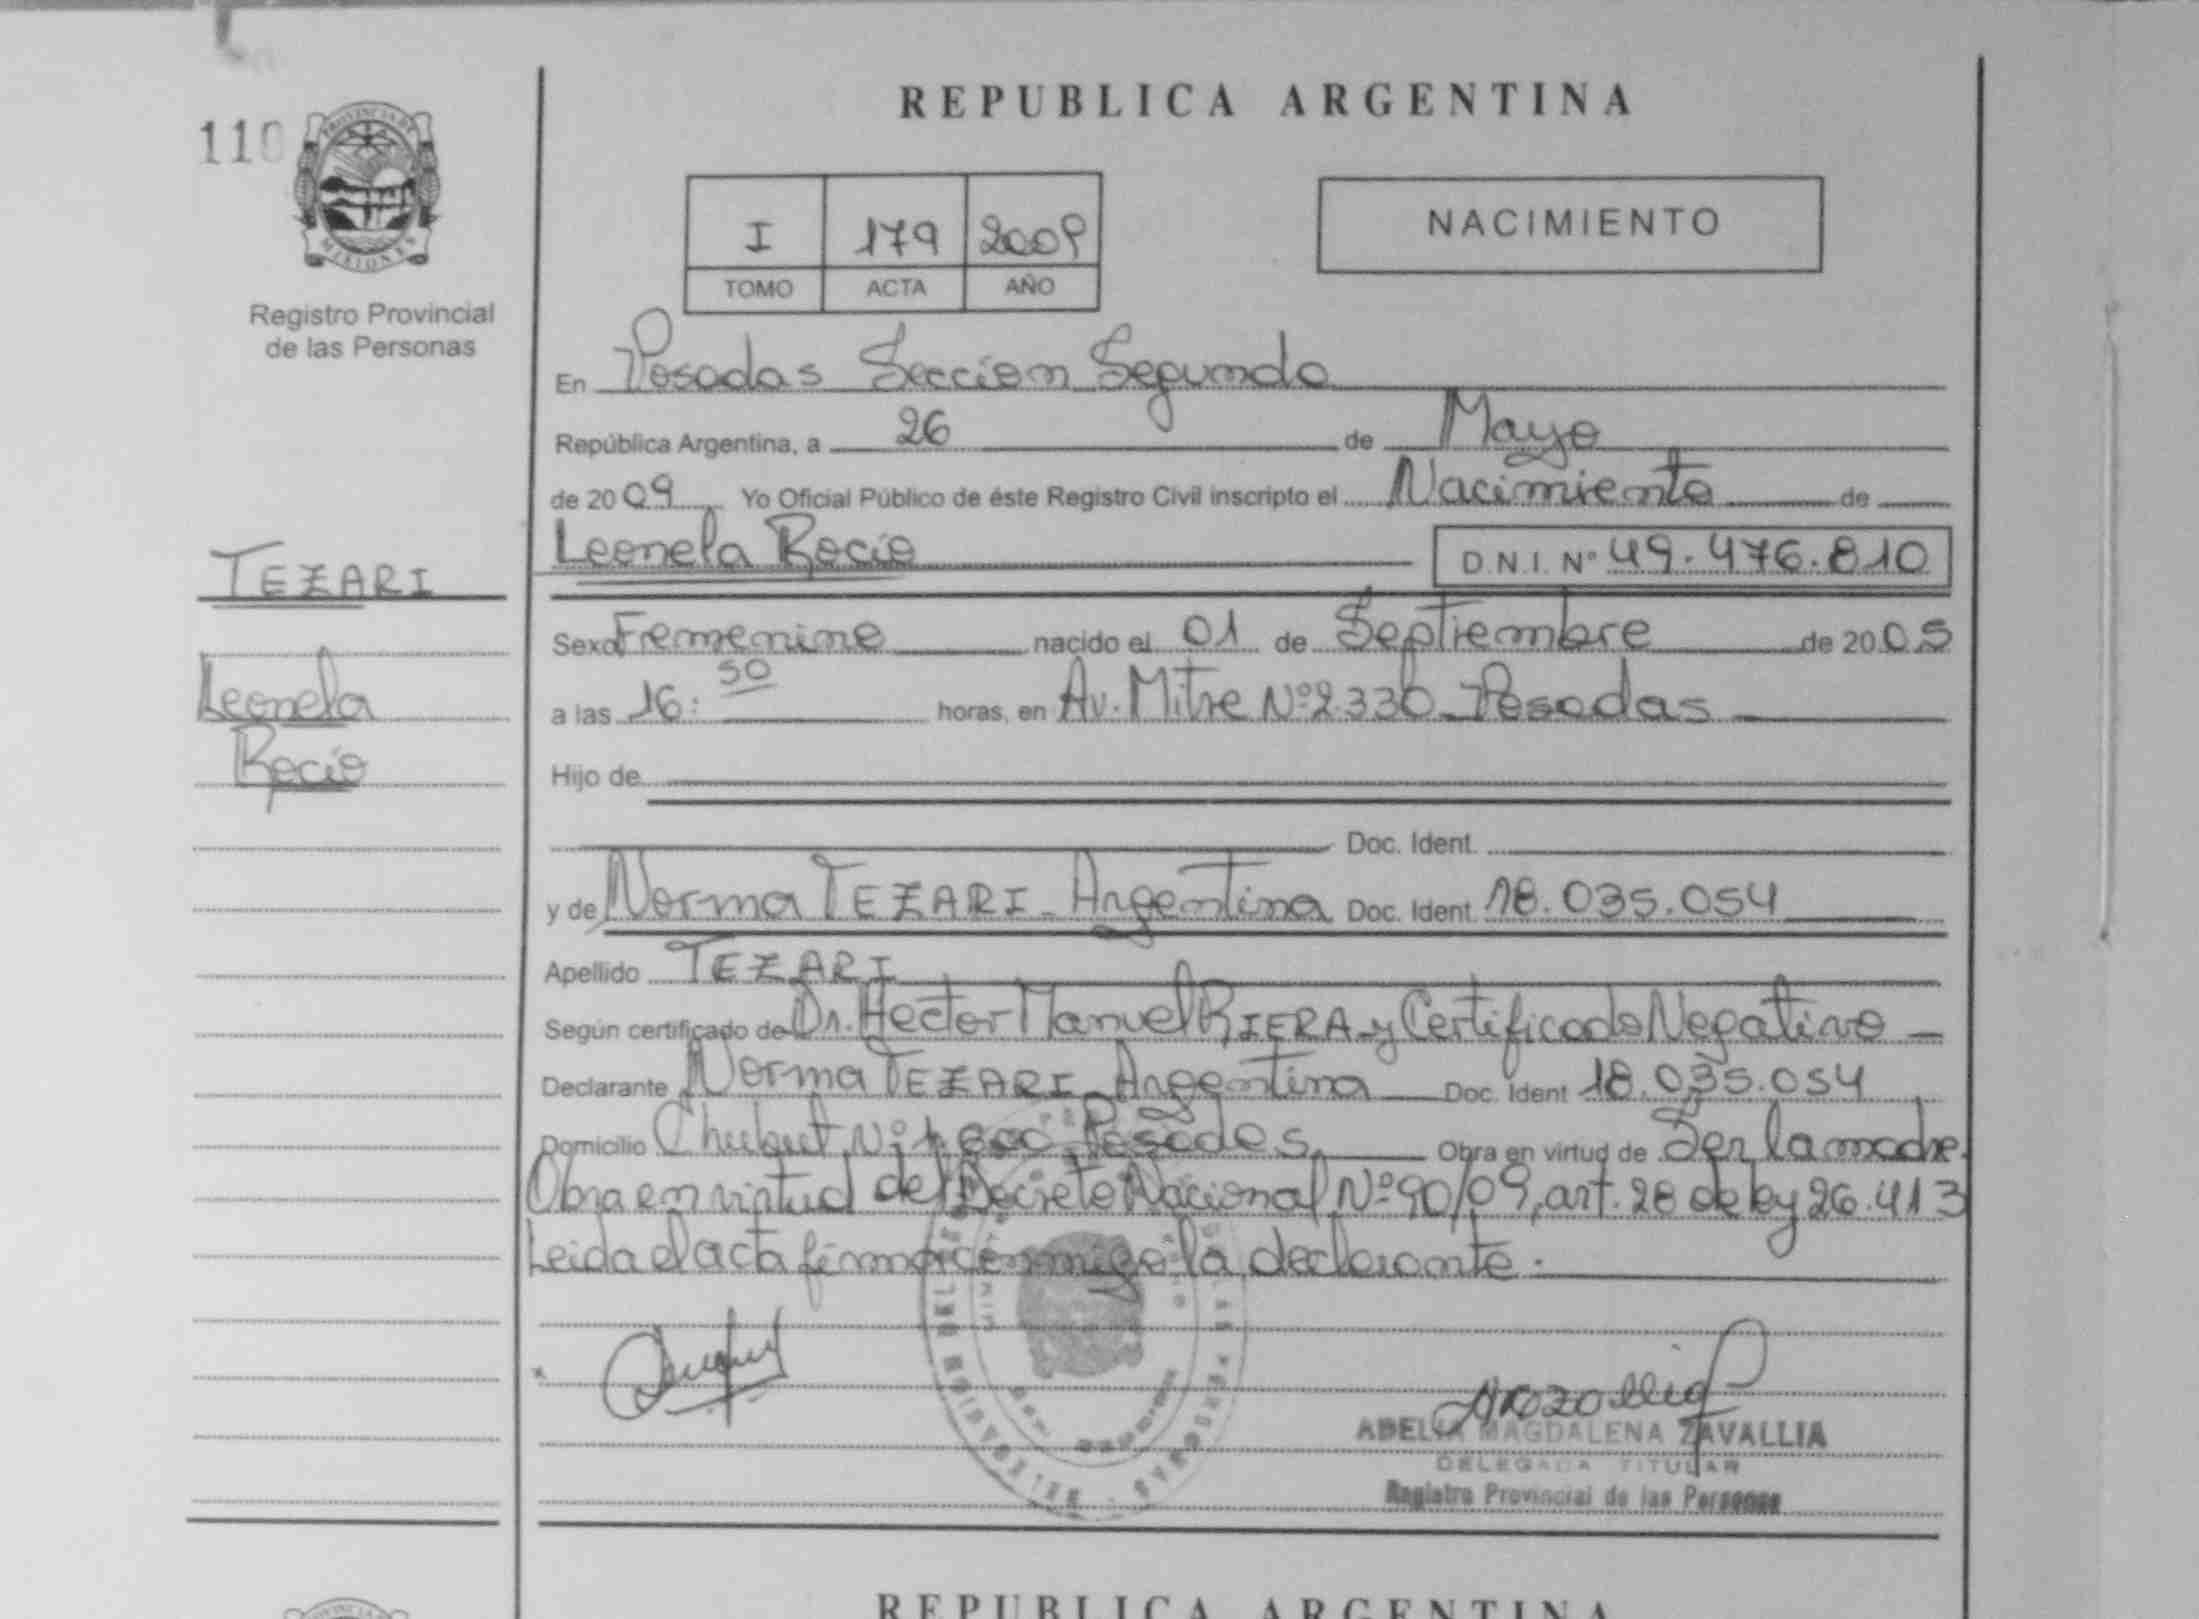 REPUBLICA ARGENTINA
110
PROVINCIA DE
MISIONES
Registro Provincial
de las Personas
I 179 2009
TOMO ACTA AÑO
NACIMIENTO
En Posadas Sección Segunda
República Argentina, a 26 de Mayo
de 2009 Yo Oficial Público de éste Registro Civil inscripto el Nacimiento de
Leonela Rocío D.N.I. Nº 49.476.810
TEZARI
Leonela
Rocío
Sexo Femenino nacido el 01 de Septiembre de 2005
a las 16:50 horas, en Av. Mitre Nº 2.330 - Posadas
Hijo de
Doc. Ident.
y de Norma TEZARI - Argentina Doc. Ident 18.035.054
Apellido TEZARI
Según certificado de Dr. Hector Manuel RIERA - y Certificado Negativo
Declarante Norma TEZARI - Argentina Doc. Ident 18.035.054
Domicilio Chubut Posadas. Obra en virtud de Ser la madre.
Obra en virtud del Decreto Nacional Nº 90/09, art. 28 de ley 26.413
Leida el acta firma conmigo la declarante.
ABELIA MAGDALENA ZAVALLIA
DELEGADA TITULAR
Registro Provincial de las Personas
REPUBLICA ARGENTINA